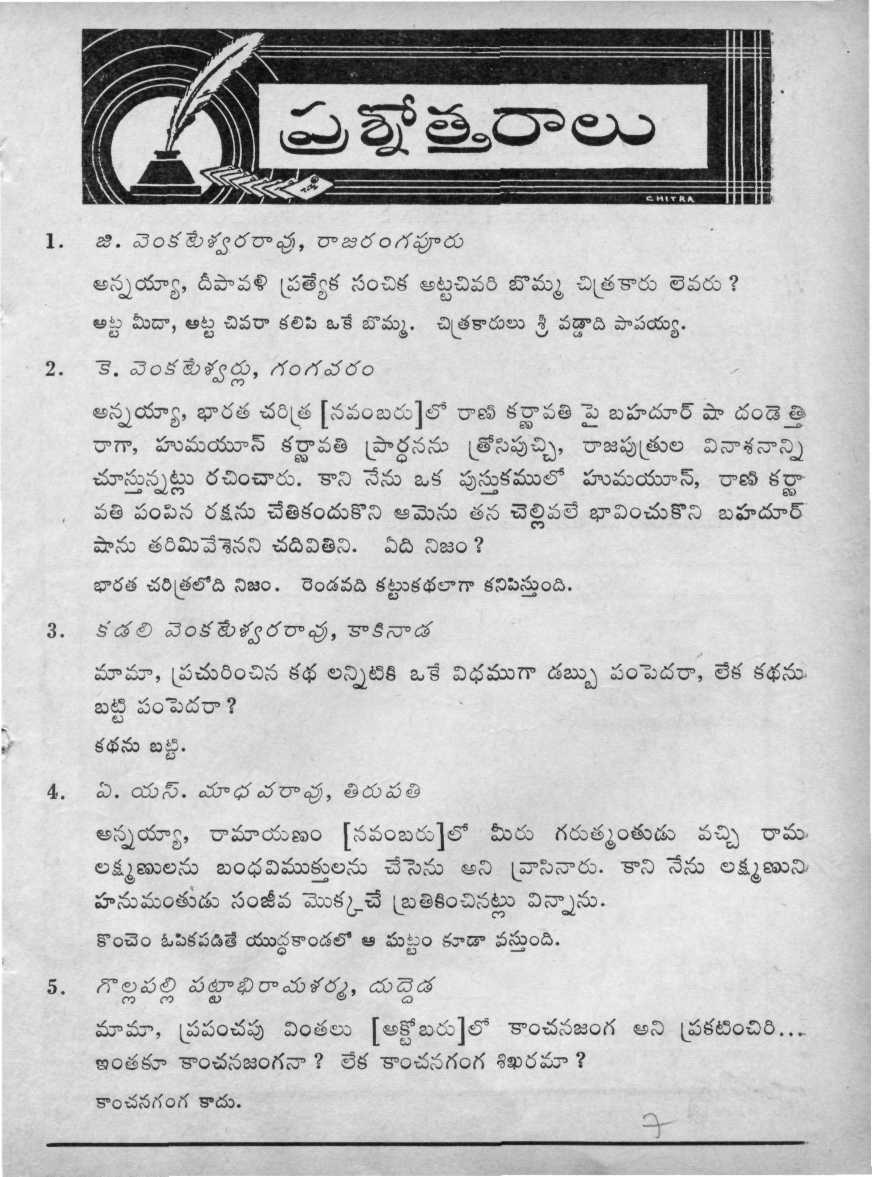 ప్రశ్నోత్తరాలు
CHITRA
1. జి. వెంకటేశ్వరరావు, రాజరంగపూరు
అన్నయ్యా, దీపావళి ప్రత్యేక సంచిక అట్టచివరి బొమ్మ చిత్రకారు లెవరు ?
అట్ట మీదా, అట్ట చివరా కలిపి ఒకే బొమ్మ. చిత్రకారులు శ్రీ వడ్డాది పాపయ్య.
2. కె. వెంకటేశ్వర్లు, గంగవరం
అన్నయ్యా, భారత చరిత్ర [నవంబరు]లో రాణి కర్ణావతి పై బహదూర్ షా దండెత్తి
రాగా, హుమయూన్ కర్ణావతి ప్రార్ధనను త్రోసిపుచ్చి, రాజపుత్రుల వినాశనాన్ని
చూస్తున్నట్లు రచించారు. కాని నేను ఒక పుస్తకములో హుమయూన్, రాణి కర్ణా
వతి పంపిన రక్షను చేతికందుకొని ఆమెను తన చెల్లివలే భావించుకొని బహదూర్
షాను తరిమివేశెనని చదివితిని. ఏది నిజం ?
భారత చరిత్రలోది నిజం. రెండవది కట్టుకథలాగా కనిపిస్తుంది.
3. కడలి వెంకటేశ్వరరావు, కాకినాడ
మామా, ప్రచురించిన కథ లన్నిటికి ఒకే విధముగా డబ్బు పంపెదరా, లేక కథను
బట్టి పంపెదరా ?
కథను బట్టి.
4. ఏ. యస్. మాధవరావు, తిరుపతి
అన్నయ్యా, రామాయణం [నవంబరు]లో మీరు గరుత్మంతుడు వచ్చి రామ
లక్ష్మణులను బంధవిముక్తులను చేసెను అని వ్రాసినారు. కాని నేను లక్ష్మణుని
హనుమంతుడు సంజీవ మొక్కచే బ్రతికించినట్లు విన్నాను.
కొంచెం ఓపికపడితే యుద్ధకాండలో ఆ ఘట్టం కూడా వస్తుంది.
5. గొల్లపల్లి పట్టాభిరామశర్మ, దుద్దెడ
మామా, ప్రపంచపు వింతలు [అక్టోబరు]లో కాంచనజంగ అని ప్రకటించిరి...
ఇంతకూ కాంచనజంగనా ? లేక కాంచనగంగ శిఖరమా ?
కాంచనగంగ కాదు.
7